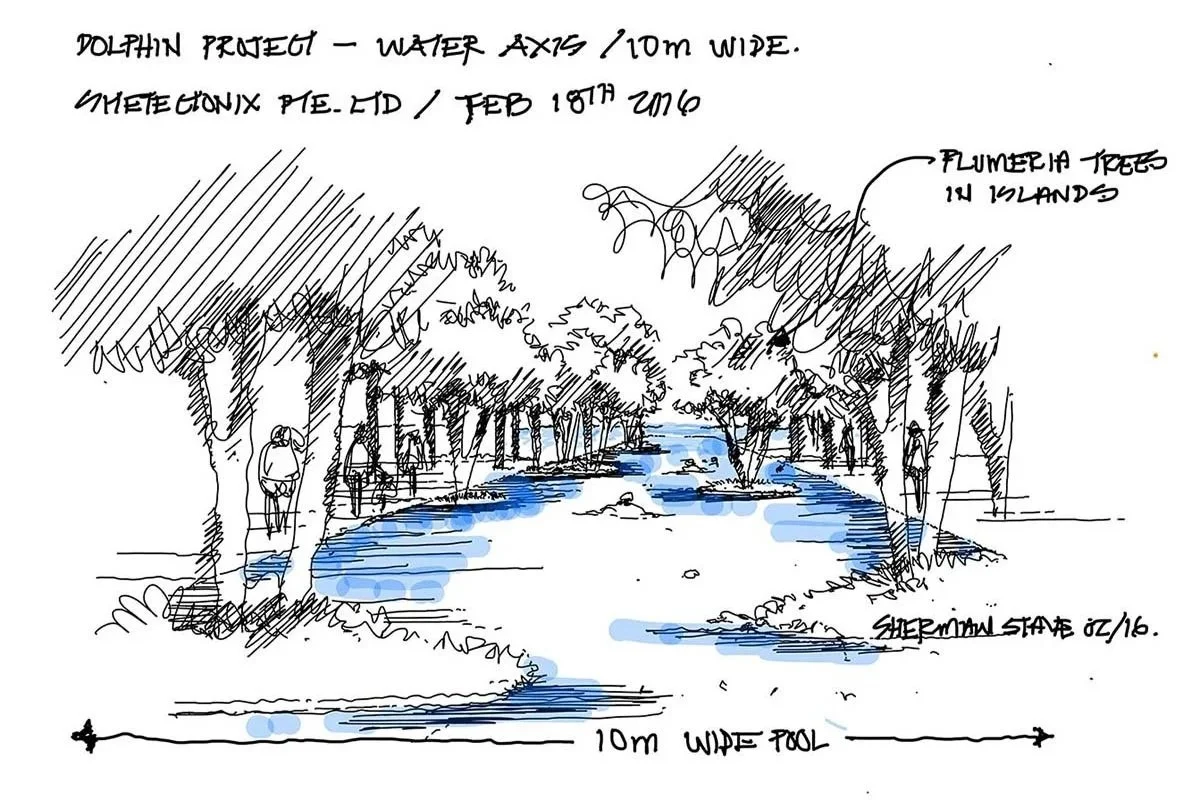 DOLPHIN PROJECT – WATER AXIS / 10m WIDE.
SHETECTONIX PTE. LTD / FEB 18TH 2016
PLUMERIA TREES
IN ISLANDS
SHERMAN STAVE 02/16.
10m WIDE POOL